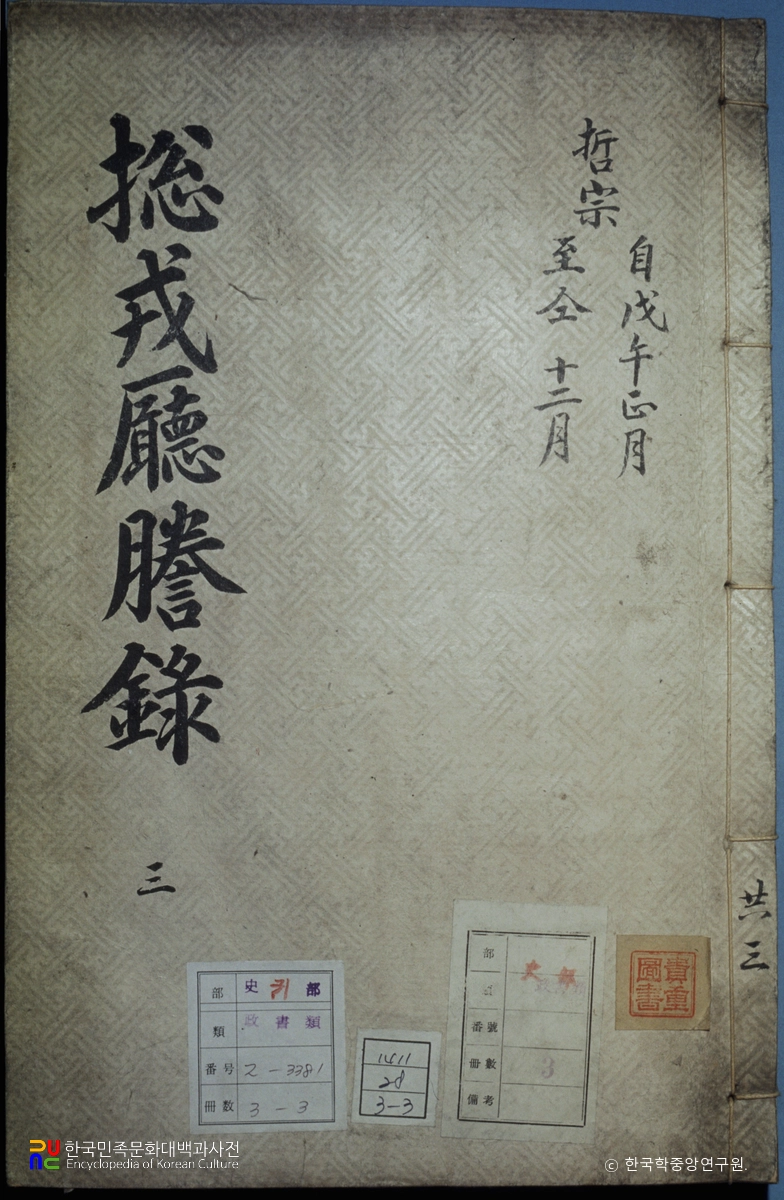 哲宗
自戊午正月
至仝十二月
摠戎廳謄錄
三
共三
部 史 귀 部
類 政書類
番号 2-3381
冊數 3-3
1411
28
3-3
部 史部
番號
冊數 3
備考
貴重
圖書
한국민족문화대백과사전
Encyclopedia of Korean Culture
© 한국학중앙연구원.